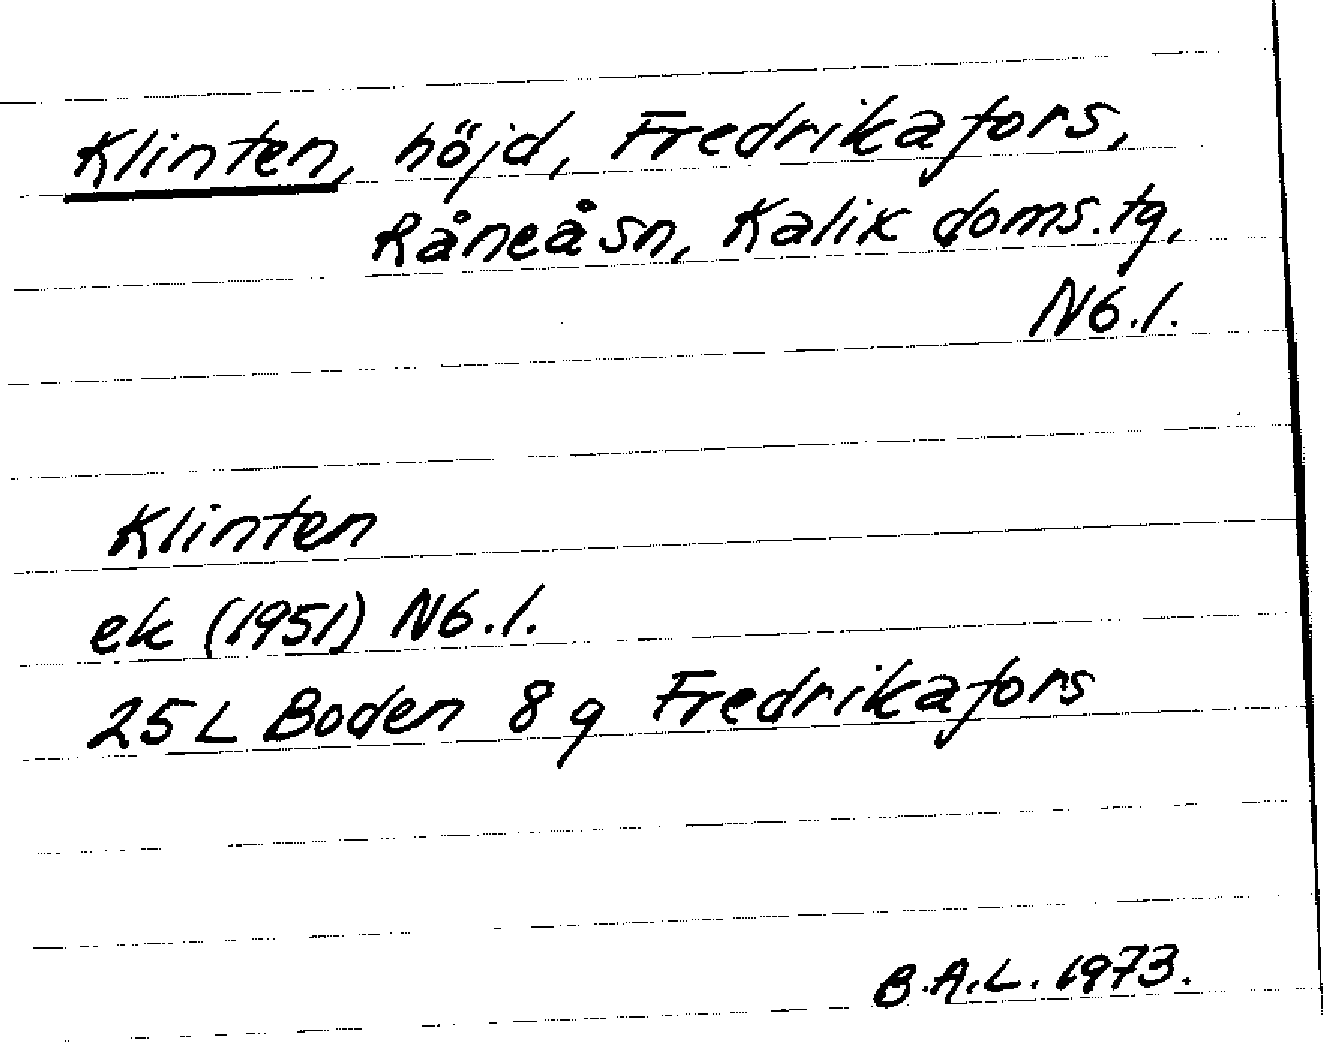 Klinten, höjd, Fredrikafors,
Råneåsn, Kalix doms.tg,
Nb.l.
Klinten
ek (1951) Nb.l.
25 L Boden 8 g Fredrikafors
B.A.L. 1973.